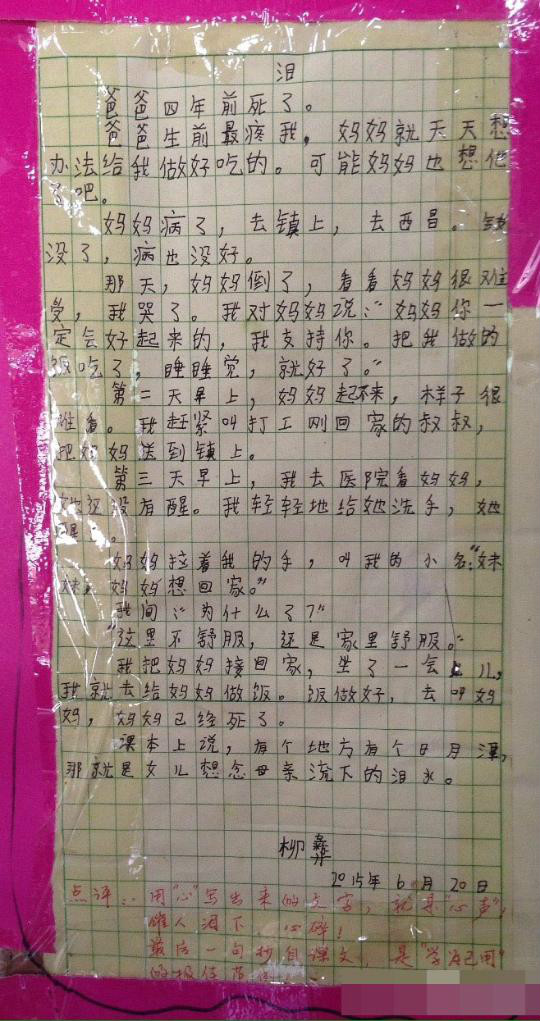 泪
爸爸四年前死了。
爸爸生前最疼我，妈妈就天天想
办法给我做好吃的。可能妈妈也想他
了吧。
妈妈病了，去镇上，去西昌。钱
没了，病也没好。
那天，妈妈倒了，看看妈妈很难
受，我哭了。我对妈妈说：“妈妈你一
定会好起来的，我支持你。把我做的
饭吃了，睡睡觉，就好了。”
第二天早上，妈妈起不来，样子很
难看。我赶紧叫打工刚回家的叔叔，
把妈妈送到镇上。
第三天早上，我去医院看妈妈，
她还没有醒。我轻轻地给她洗手，她
醒了。
妈妈拉着我的手，叫我的小名：“妹
妹，妈妈想回家。”
我问：“为什么了？”
“这里不舒服，还是家里舒服。”
我把妈妈接回家，坐了一会儿，
我就去给妈妈做饭。饭做好，去叫妈
妈，妈妈已经死了。
课本上说，有个地方有个日月潭，
那就是女儿想念母亲流下的泪水。
柳彝
2015年6月20日
点评：用“心”写出来的文字，就是“心声”，
催人泪下 心碎！
最后一句抄自课文，是“学为己用”
的极佳